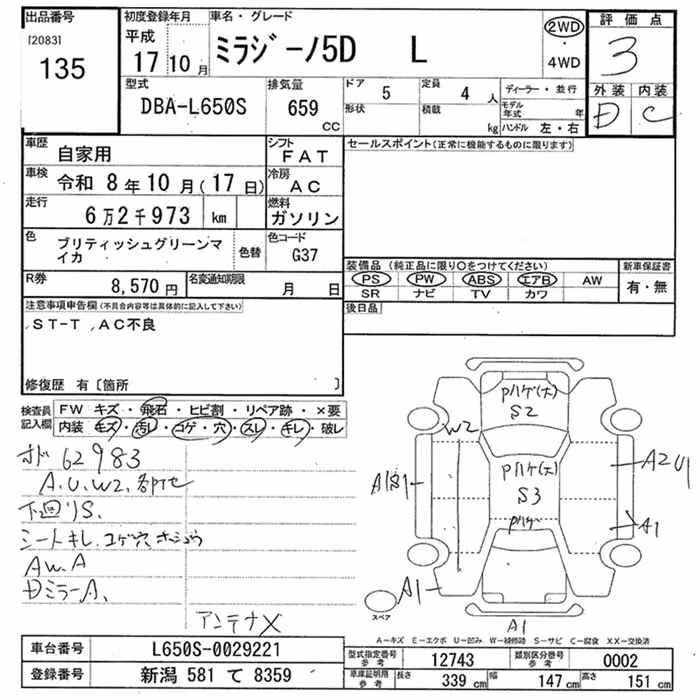 出品番号 初度登録年月 車名・グレード 評価点
[2083] 平成 2WD
135 17 10月 ミラジーノ5D L ・ 3
4WD
型式 排気量 ドア 定員 ディーラー・並行 外装 内装
DBA-L650S 659 CC 5 4 人 モデル年式 年 D C
形状 積載 kg ハンドル 左・右
車歴 自家用 シフト FAT セールスポイント(正常に機能するものに限ります)
車検 令和 8年10月(17日) 冷房 AC
走行 6万2千973 km 燃料 ガソリン
色 ブリティッシュグリーンマイカ 色替 色コード G37
装備品 (純正品に限り○をつけてください) 新車保証書
R券 8,570円 名変通知期限 月 日 PS PW ABS エアB AW 有・無
SR ナビ TV カワ
注意事項申告欄(不具合内容等は具体的に記入して下さい) 後日品
ST-T ,AC不良
修復歴 有〔箇所 〕
検査員 FW キズ・飛石・ヒビ割・リペア跡・×要
記入欄 内装 キズ・汚レ・コゲ・穴・スレ・キレ・破レ
オド 62983
A.U.W2.
下回りS.
シートキレ.コゲ穴
Aw.A
DミラーA.
アンテナX
Pハゲ(大)
S2
W2
Pハゲ(大)
S3
Pハゲ
A1S1
A2 U1
A1
A1
A1
スペア
A-キズ E-エクボ U-凹み W-補修跡 S-サビ C-腐食 XX-交換済
車台番号 L650S-0029221 型式指定番号 参考 12743 類別区分番号 参考 0002
登録番号 新潟 581 て 8359 車庫証明用 参考 長さ 339 cm 幅 147 cm 高さ 151 cm